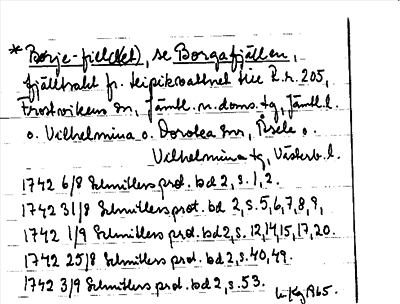 * Börje-fiell(et), se Borgafjällen,
fjälltrakt fr. Leipikvattnet till R.r. 205,
Frostvikens sn, Jämtl. n. doms. tg, Jämtl. l.
o. Vilhelmina o. Dorotea snr, Åsele o.
Vilhelmina tg, Västerb. l.
1742 6/8 Schnitlers prot. bd 2, s. 1, 2.
1742 31/8 Schnitlers prot. bd 2, s. 5, 6, 7, 8, 9,
1742 1/9 Schnitlers prot. bd 2, s. 12, 14, 15, 17, 20.
1742 25/8 Schnitlers prot. bd 2, s. 40, 49.
1742 3/9 Schnitlers prot. bd 2, s. 53.
1965.